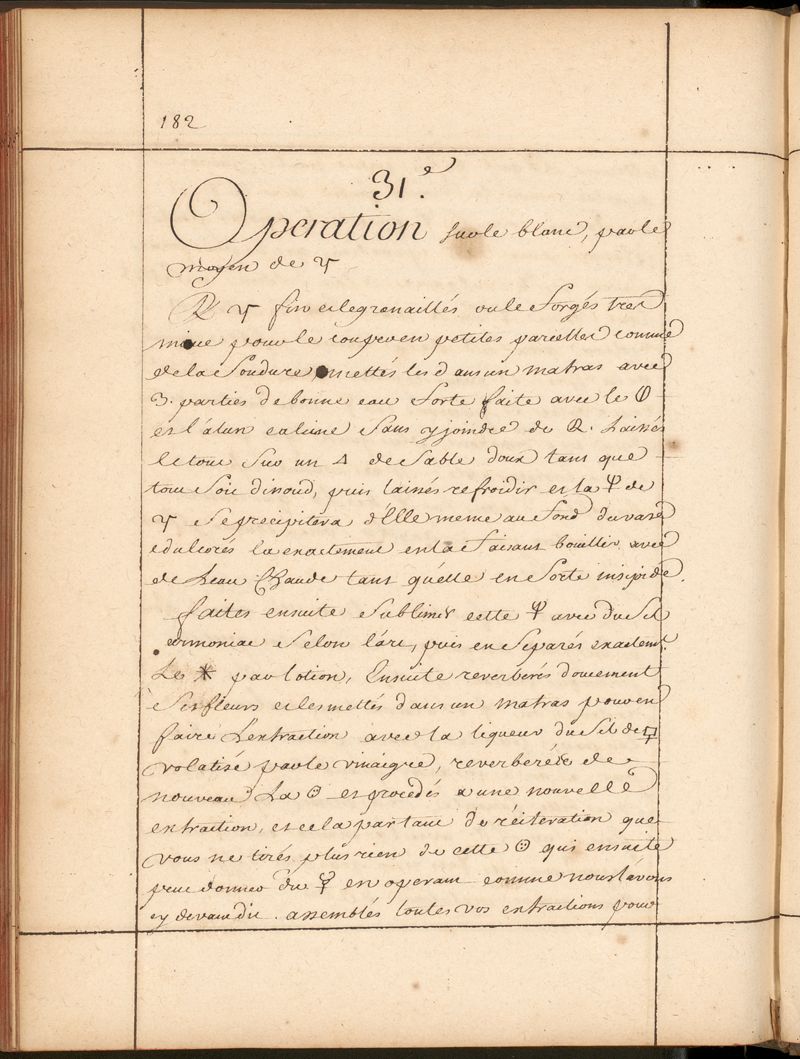 182
31.e
Operation sur le blanc, par le
moyen de ♃
♃ fin et le grenaillés ou le Forgés tres
mince pour le couper en petites parcelles comme
de la Soudure mettés les dans un matras avec
3. parties de bonne eau forte faite avec les
et l'alun calciné Sans y joindre de . Laissés
le tout Sur un △ de Sable doux tant que
tout Soit dissoud, puis laissés refroidir et la de
♃ Se precipitera d'Elle meme au fond du vase
edulcorés la exactement en la faisant bouillir avec
de Leau Chaude tant qu'elle en Sorte insipide.
faites ensuite Sublimer cette avec du Sel
armoniac Selon l'art, puis en Separés exactemt.
Le ✶ par lotion, Ensuite reverberés doucement
Ses fleurs et les mettés dans un matras pour en
faire L'extraction avec la liqueur du Sel de
volatisé par le vinaigre, reverberés de
nouveau La et procedés a une nouvelle
extraction, et cela par tant de réiteration que
vous ne tirés plus rien de cette qui ensuite
peut donner du ☿ en operant comme nous l'avons
cy devant dit. assemblés toutes vos extractions pour